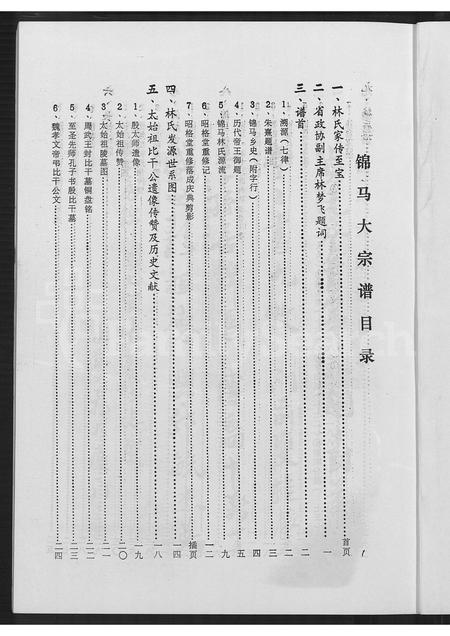 锦马大宗谱目录
一、林氏家传至宝……首页
二、省政协副主席林梦飞题词……一
三、谱首……二
1、溯源（七律）……二
2、朱熹题谱……三
3、锦马乡史（附字行）……四
4、历代帝王御题……五
5、锦马林氏源流……九
6、昭格堂重修记……一二
7、昭格堂重修落成庆典剪影……插页
四、林氏发源世系图……一四
五、太始祖比干公遗像传赞及历史文献……一八
1、殷太师遗像……一九
2、太始祖传赞……二〇
3、太始祖陵墓图……二一
4、周武王封比干墓铜盘铭……二二
5、至圣先师孔子书殷比干墓……二三
6、魏孝文帝吊比干公文……二四
FamilySearch